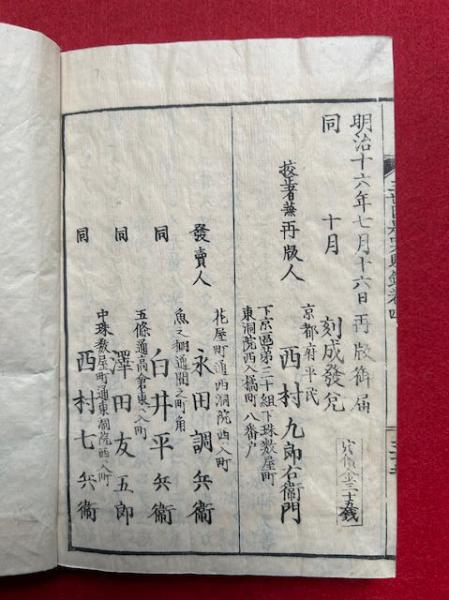 明治十六年七月十六日再版御届
同　十月　刻成發兌
定價金三十五錢
京都府平民
挍著兼再版人　西村九郎右衞門
下京區第三十組下珠数屋町
東洞院西入橘町八番戸
花屋町通西洞院西入町
發賣人　永田調兵衞
魚ノ棚通間之町角
同　臼井平兵衞
五條通高倉東入町
同　澤田友五郎
中珠数屋町通東洞院西入町
同　西村七兵衞